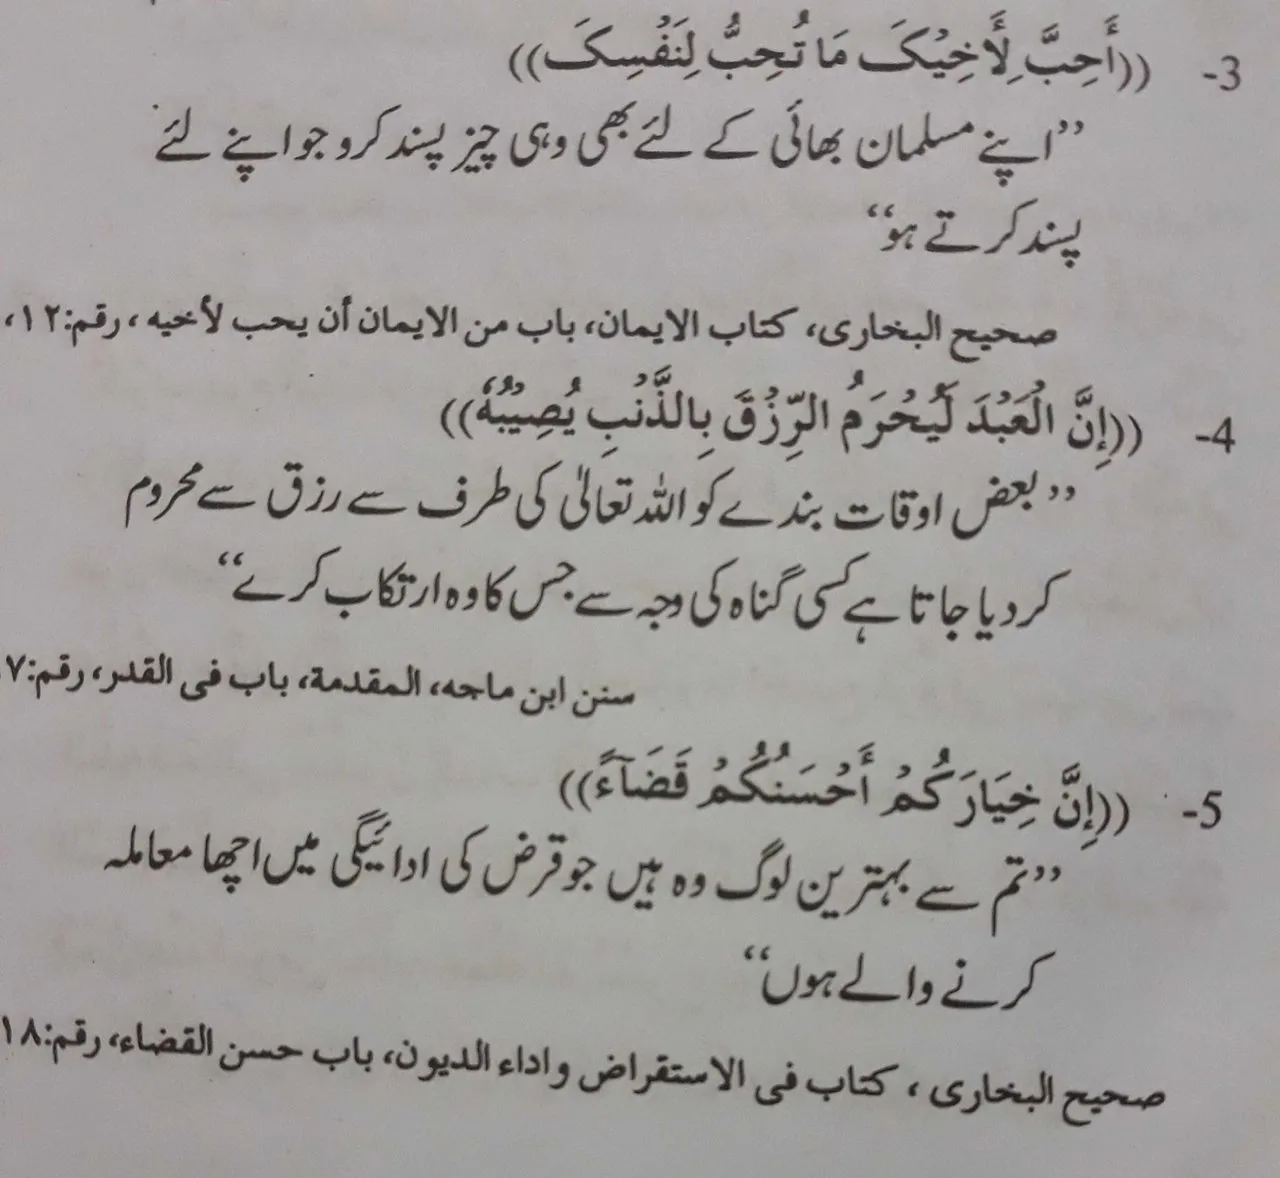 3- ((أَحِبَّ لِأَخِيْكَ مَا تُحِبُّ لِنَفْسِكَ))
”اپنے مسلمان بھائی کے لئے بھی وہی چیز پسند کرو جو اپنے لئے
پسند کرتے ہو“
صحیح البخاری، کتاب الایمان، باب من الایمان أن یحب لأخیه، رقم:۱۲،
4- ((إِنَّ الْعَبْدَ لَيُحْرَمُ الرِّزْقَ بِالذَّنْبِ يُصِيْبُهُ))
”بعض اوقات بندے کو اللہ تعالیٰ کی طرف سے رزق سے محروم
کر دیا جاتا ہے کسی گناہ کی وجہ سے جس کا وہ ارتکاب کرے“
سنن ابن ماجه، المقدمة، باب فی القدر، رقم:۷
5- ((إِنَّ خِيَارَكُمْ أَحْسَنُكُمْ قَضَآءً))
”تم سے بہترین لوگ وہ ہیں جو قرض کی ادائیگی میں اچھا معاملہ
کرنے والے ہوں“
صحیح البخاری، کتاب فی الاستقراض واداء الدیون، باب حسن القضاء، رقم:۱۸